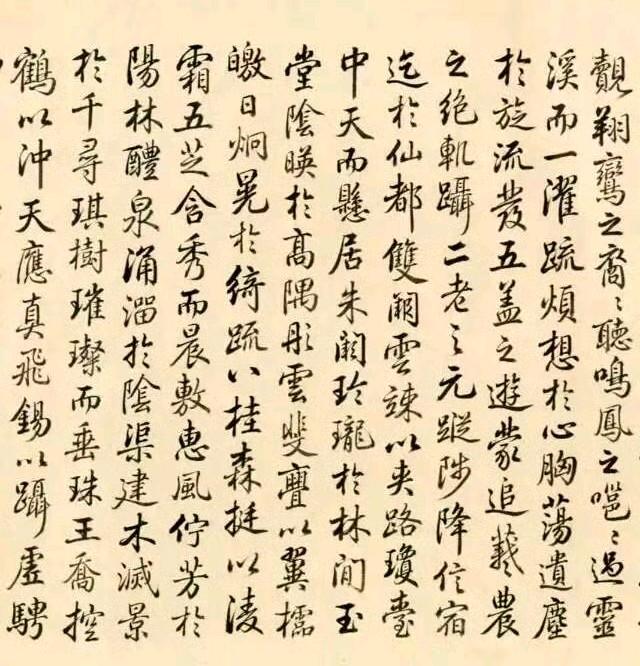 覿翔鸞之裔〻聽鳴鳳之嗈〻過靈
溪而一濯疏煩想於心胸蕩遺塵
於旋流發五盖之遊蒙追羲農
之絶軌躡二老之元蹤陟降信宿
迄於仙都雙闕雲竦以夾路瓊臺
中天而懸居朱闕玲瓏於林間玉
堂陰暎於高隅彤雲斐亹以翼櫺
皦日炯晃於綺疏八桂森挺以淩
霜五芝含秀而晨敷惠風佇芳於
陽林醴泉涌溜於陰渠建木滅景
於千尋琪樹璀璨而垂珠王喬控
鶴以沖天應真飛錫以躡虛騁